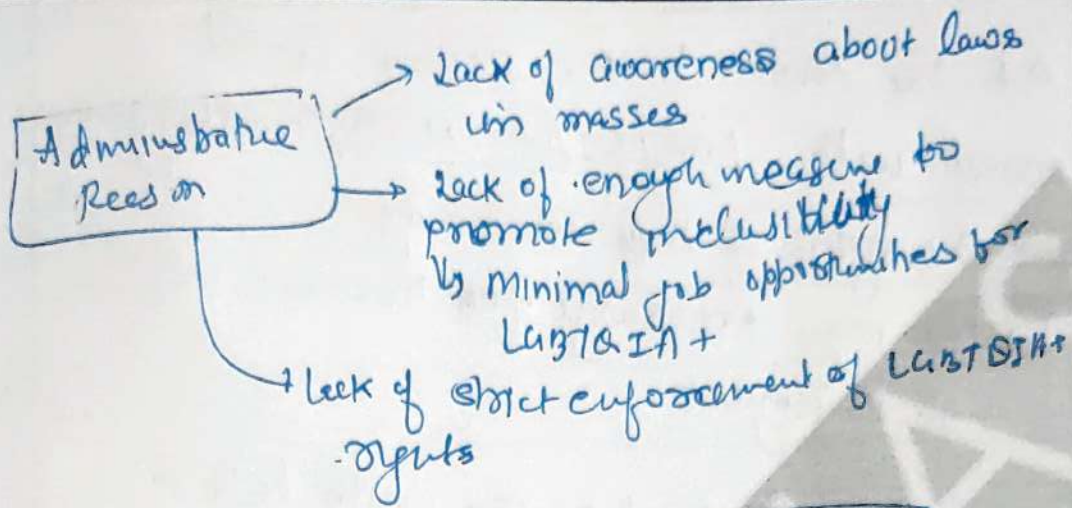 Administrative
Reason
→ Lack of awareness about laws
in masses
→ Lack of enough measure to
promote inclusibility
↳ Minimal job opportunities for
LGBTQIA+
→ Lack of strict enforcement of LGBTQIA+
rights